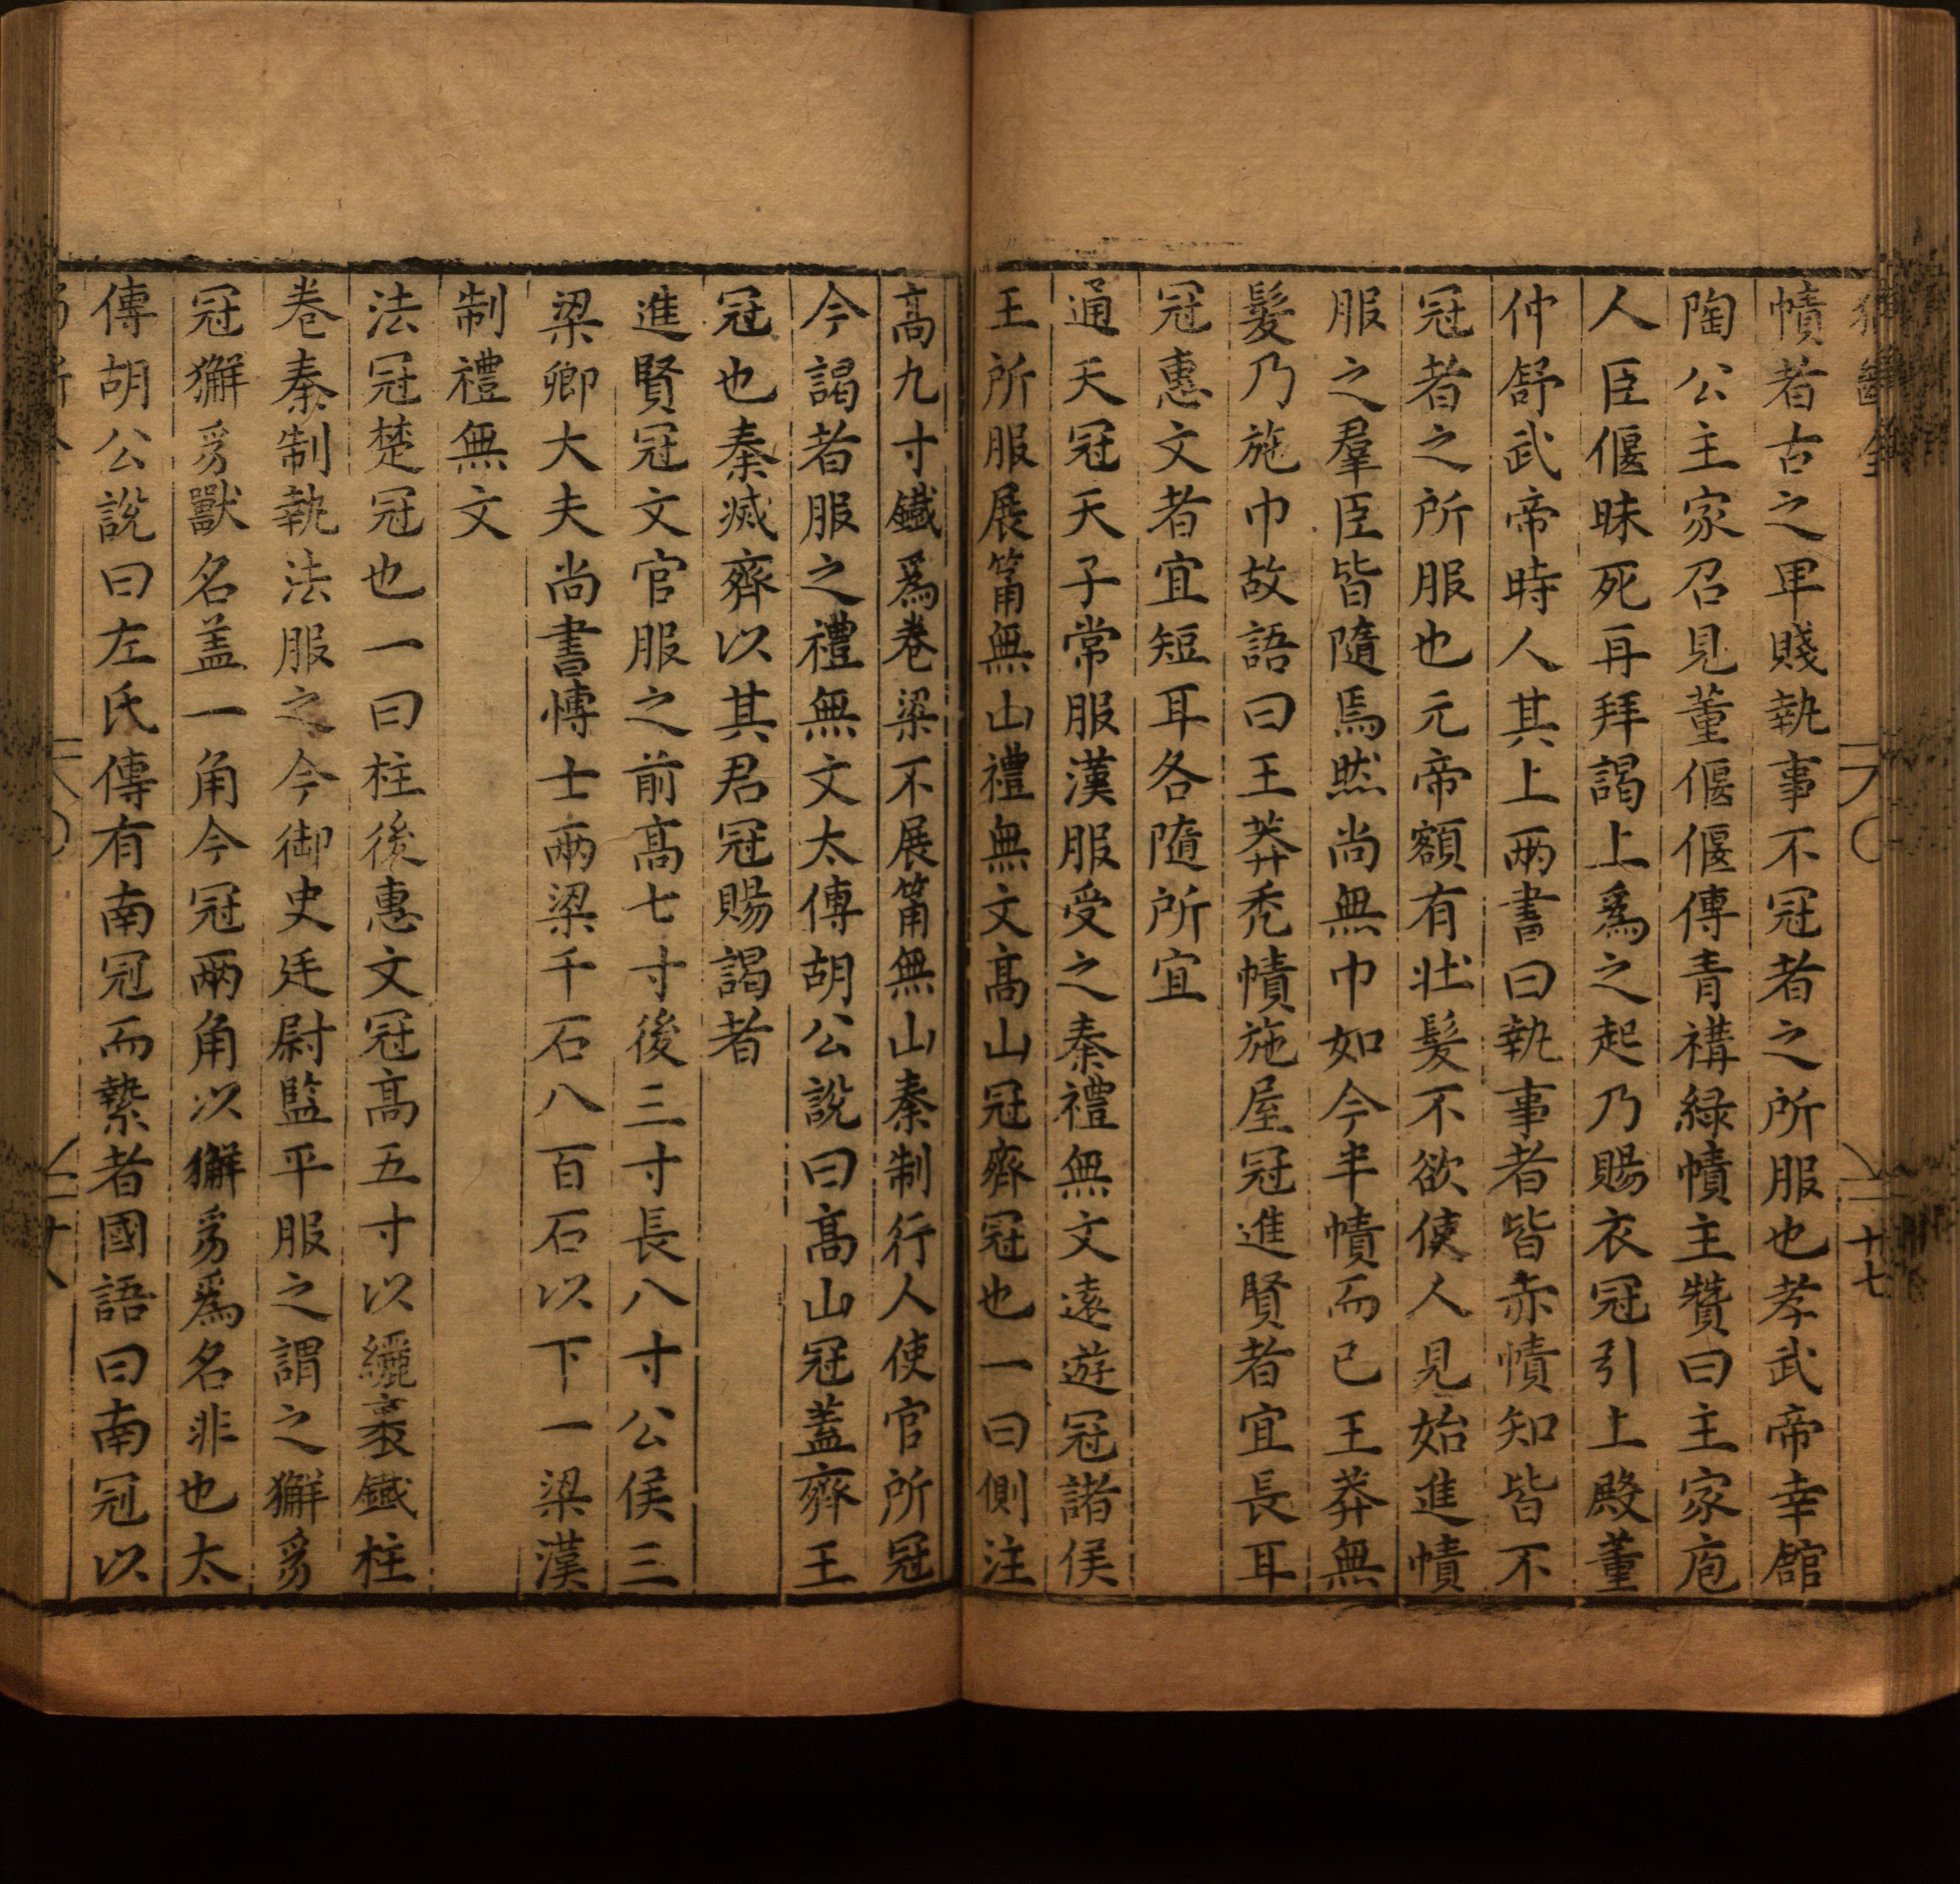 幘者古之卑賤執事不冠者之所服也孝武帝幸館
陶公主家召見董偃偃傳青褠緑幘主贊曰主家庖
人臣偃昧死再拜謁上爲之起乃賜衣冠引上殿董
仲舒武帝時人其上兩書曰執事者皆赤幘知皆不
冠者之所服也元帝額有壯髮不欲使人見始進幘
服之羣臣皆隨焉然尚無巾如今半幘而已王莽無
髮乃施巾故語曰王莽禿幘施屋冠進賢者宜長耳
冠惠文者宜短耳各隨所宜
通天冠天子常服漢服受之秦禮無文遠遊冠諸侯
王所服展筩無山禮無文高山冠齊冠也一曰側注
高九寸鐵爲卷梁不展筩無山秦制行人使官所冠
今謁者服之禮無文太傅胡公說曰高山冠蓋齊王
冠也秦滅齊以其君冠賜謁者
進賢冠文官服之前高七寸後三寸長八寸公侯三
梁卿大夫尚書博士兩梁千石八百石以下一梁漢
制禮無文
法冠楚冠也一曰柱後惠文冠高五寸以纚裹鐵柱
卷秦制執法服之今御史廷尉監平服之謂之獬豸
冠獬豸獸名蓋一角今冠兩角以獬豸爲名非也太
傅胡公說曰左氏傳有南冠而縶者國語曰南冠以
十七